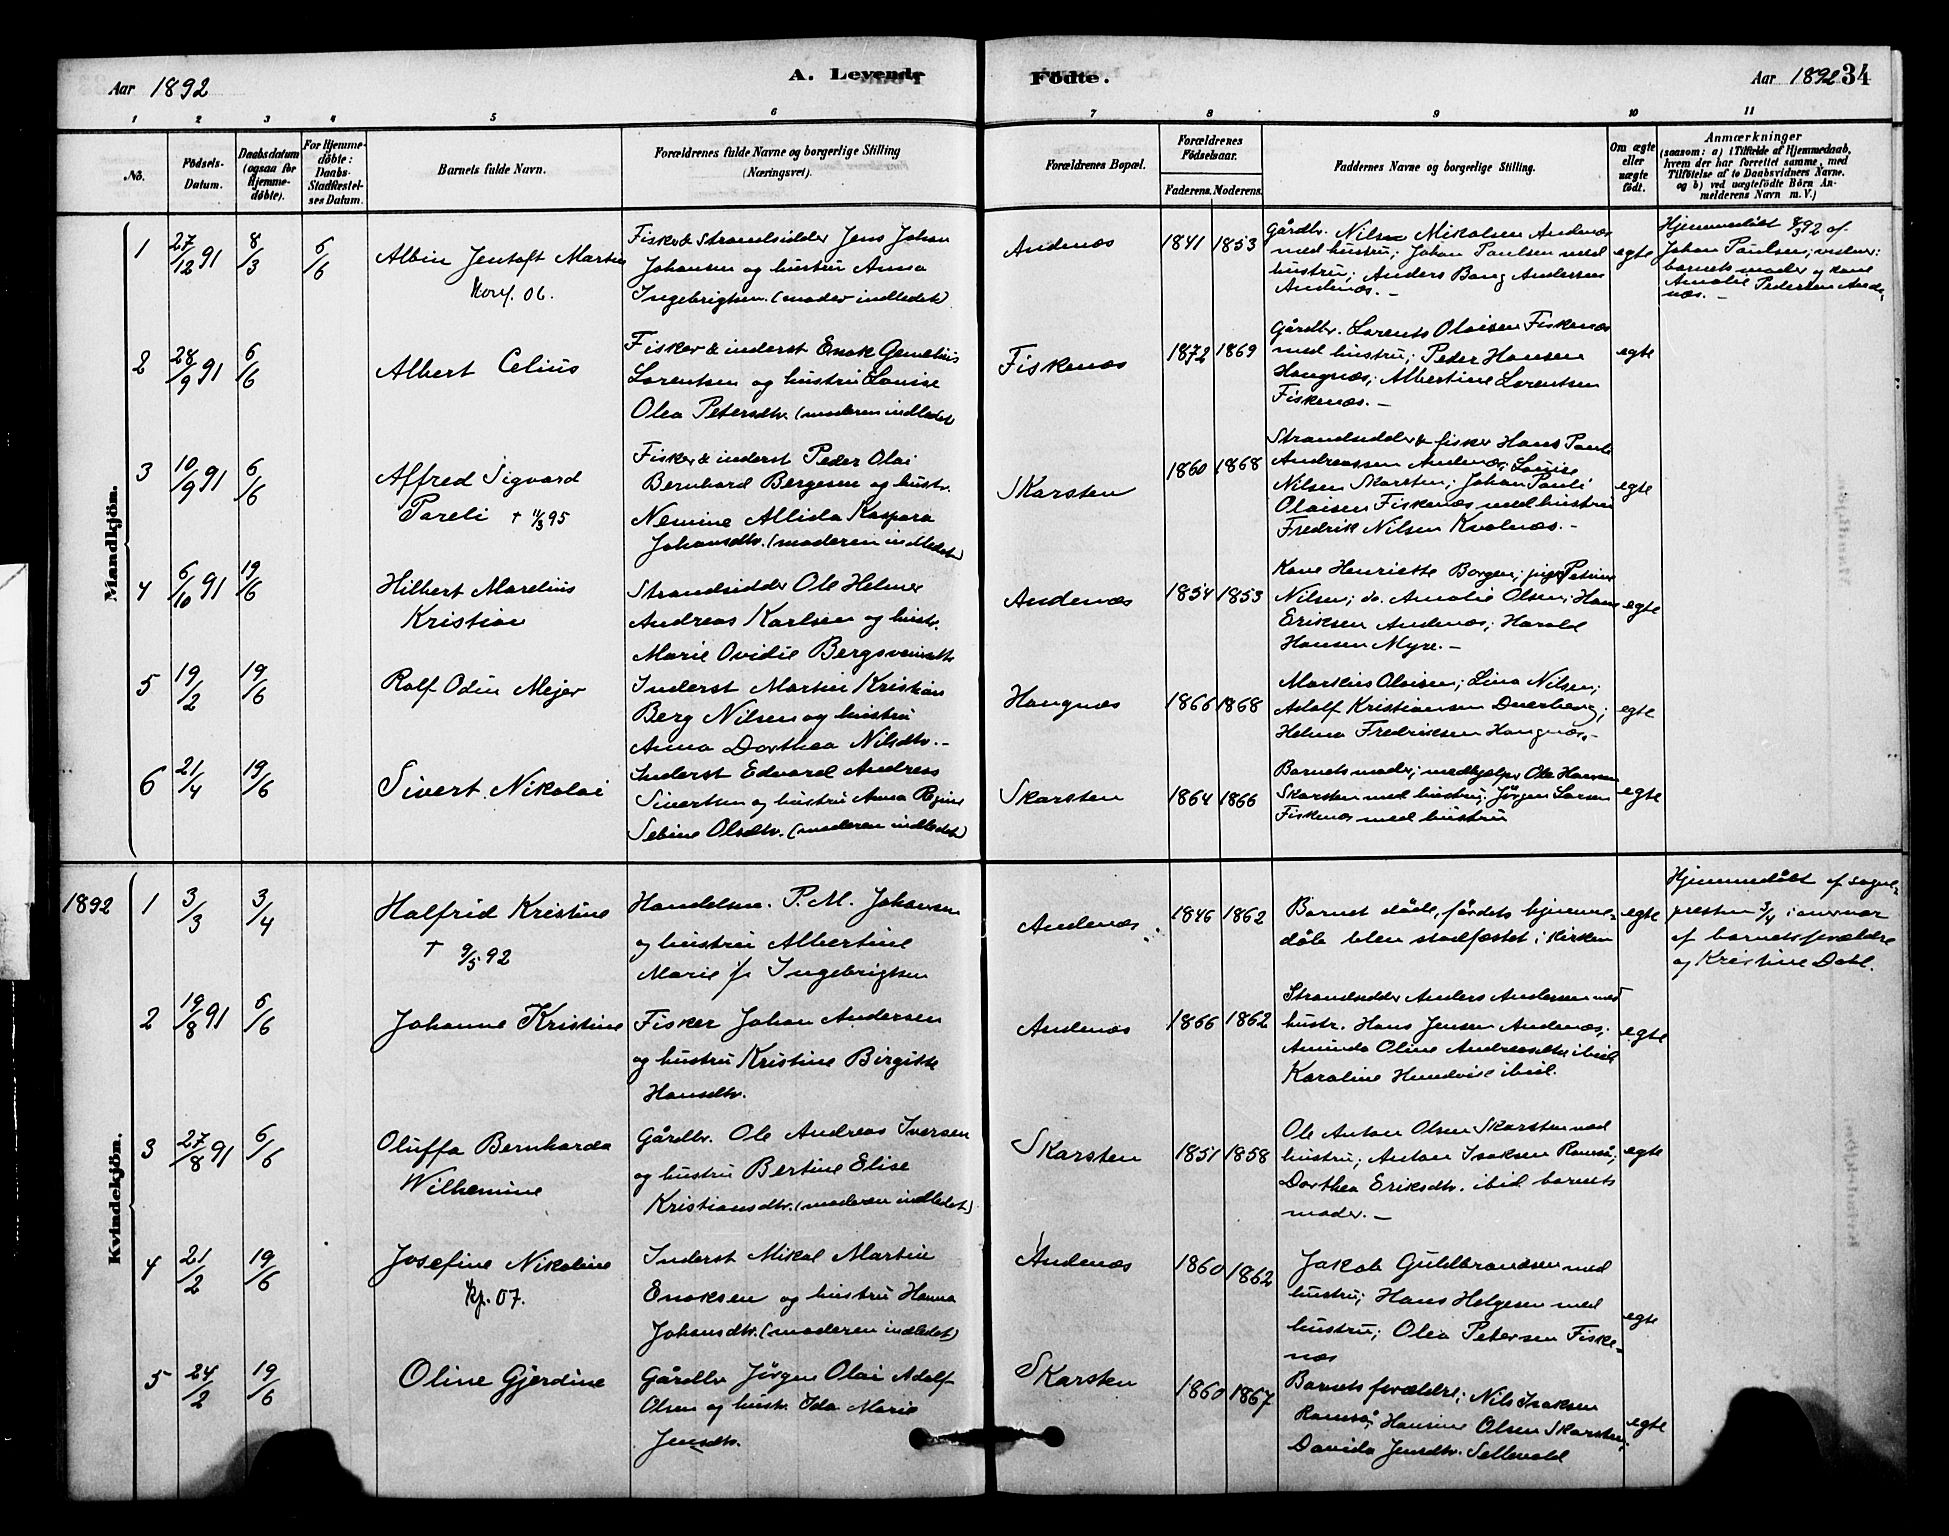 Aar 1892
A. Levende
Födte.
Aar 1892
34
1 2 3 4 5 6 7 8 9 10 11
No.
Födsels-
Datum.
Daabsdatum
(ogsaa for
Hjemme-
döbte).
For Hjemme-
döbte:
Daabs-
Stadfæstel-
ses Datum.
Barnets fulde Navn.
Forældrenes fulde Navne og borgerlige Stilling
(Næringsvei).
Forældrenes Bopæl.
Forældrenes
Födselsaar.
Faderens. Moderens.
Faddernes Navne og borgerlige Stilling.
Om ægte
eller
uægte
födt.
Anmærkninger
(saasom: a) i Tilfælde af Hjemmedaab,
hvem der har forrettet samme, med
Tilföielse af to Daabsvidners Navne,
og b) ved uægtefödte Börn An-
melderens Navn m. V.)
Mandkjön.
1
27/12 91
8/3
6/6
Albin Jentoft Martin
Konf. 06.
Fisker & Strandsidder Jens Johan
Johansen og hustru Anna
Ingebrigtsen. (moder indledet)
Andenæs
1841 1853
Gårdbr. Nils Mikalsen Andenæs
med hustru; Johan Paulsen med
hustru; Anders Bang Andersen
Andenæs. —
egte
Hjemmedöbt 8/3 92 af
Johan Paulsen; vidner:
barnets moder og kone
Amalie Pedersen Ande-
næs. —
2
28/9 91
6/6
Albert Celius
Fisker & inderst Enok Gemelius
Lorentsen og hustru Louise
Olea Petersdtr. (moderen indledet)
Fiskenæs
1872 1869
Gårdbr. Lorents Olaisen Fiskenæs
med hustru; Peder Hansen
Haugnæs; Albertine Lorentsen
Fiskenæs. —
egte
3
10/9 91
6/6
Alfred Sigvard
Pareli † 11/3 95
Fisker & inderst Peder Olai
Bernhard Bergesen og hustr.
Nemine Allida Kaspara
Johansdtr. (moderen indledet)
Skarsten
1860 1868
Strandsidder & fisker Hans Paul
Andreassen Andenæs; Louise
Nilsen Skarsten; Johan Pauli
Olaisen Fiskenæs med hustru
Fredrik Nilsen Kvalnæs. —
egte
4
6/10 91
19/6
Hilbert Marelius
Kristian
Strandsidder Ole Helmer
Andreas Karlsen og hustr.
Marie Ovidie Bergsveinsdtr.
Andenæs
1854 1853
Kone Henriette Borgen; pige Petrine
Nilsen; do. Amalie Olsen; Hans
Eriksen Andenæs; Harald
Hansen Myre. —
egte
5
19/2
19/6
Rolf Odin Mejer
Inderst Martin Kristian
Berg Nilsen og hustru
Anna Dorthea Nilsdtr. —
Haugnæs
1866 1868
Markus Olaisen; Lina Nilsen;
Adolf Kristiansen Dverberg;
Helma Fredriksen Haugnæs. —
egte
6
21/4
19/6
Sivert Nikolai
Inderst Edvard Andreas
Sivertsen og hustru Anna Regine
Sebine Olsdtr. (moderen indledet)
Skarsten
1864 1866
Barnets moder; medhjelper Ole Hansen
Skarsten med hustru; Jörgen Larsen
Fiskenæs med hustru
egte
1892
Kvindekjön.
1
3/3
3/4
Halfrid Kristine
† 9/5 92
Handelsm. P. M. Johansen
og hustru Albertine
Marie f. Ingebrigtsen
Andenæs
1846 1862
Barnet döde, förend hjemme-
dåb blev stadfæstet i kirken
egte
Hjemmedöbt af sogne-
presten 3/4 i nærvær
af barnets forældre
og Kristine Dahl.
2
19/8 91
6/6
Johanne Kristine
Fisker Johan Andersen
og hustru Kristine Birgitte
Hansdtr.
Andenæs
1866 1862
Strandsidder Anders Andersen med
hustr. Hans Jensen Andenæs;
Amunda Oline Andreasdtr ibid
Karoline Hundvise ibid.
egte
3
27/8 91
6/6
Oluffa Bernharda
Wilhemine
Gårdbr. Ole Andreas Iversen
og hustru Bertine Elise
Kristiansdtr. (moderen indledet)
Skarsten
1851 1858
Ole Anton Olsen Skarsten med
hustru; Anton Isaksen Ramså;
Dorthea Eriksdtr. ibid. barnets
moder. —
egte
4
21/2
19/6
Josefine Nikoline
Kf. 07.
Inderst Mikal Martin
Enoksen og hustru Hanna
Johansdtr. (moderen indledet)
Andenæs
1860 1862
Jakob Guldbrandsen med
hustru; Hans Helgesen med
hustru; Olea Petersen Fiske-
næs
egte
5
24/2
19/6
Oline Gjerdine
Gårdbr Jörgen Olai Adolf
Olsen og hustr. Ida Marie
Jensdtr.
Skarsten
1860 1867
Barnets forældre; Nils Isaksen
Ramså; Hansine Olsen Skarsten;
Davida Jensdtr. Sellevold
egte